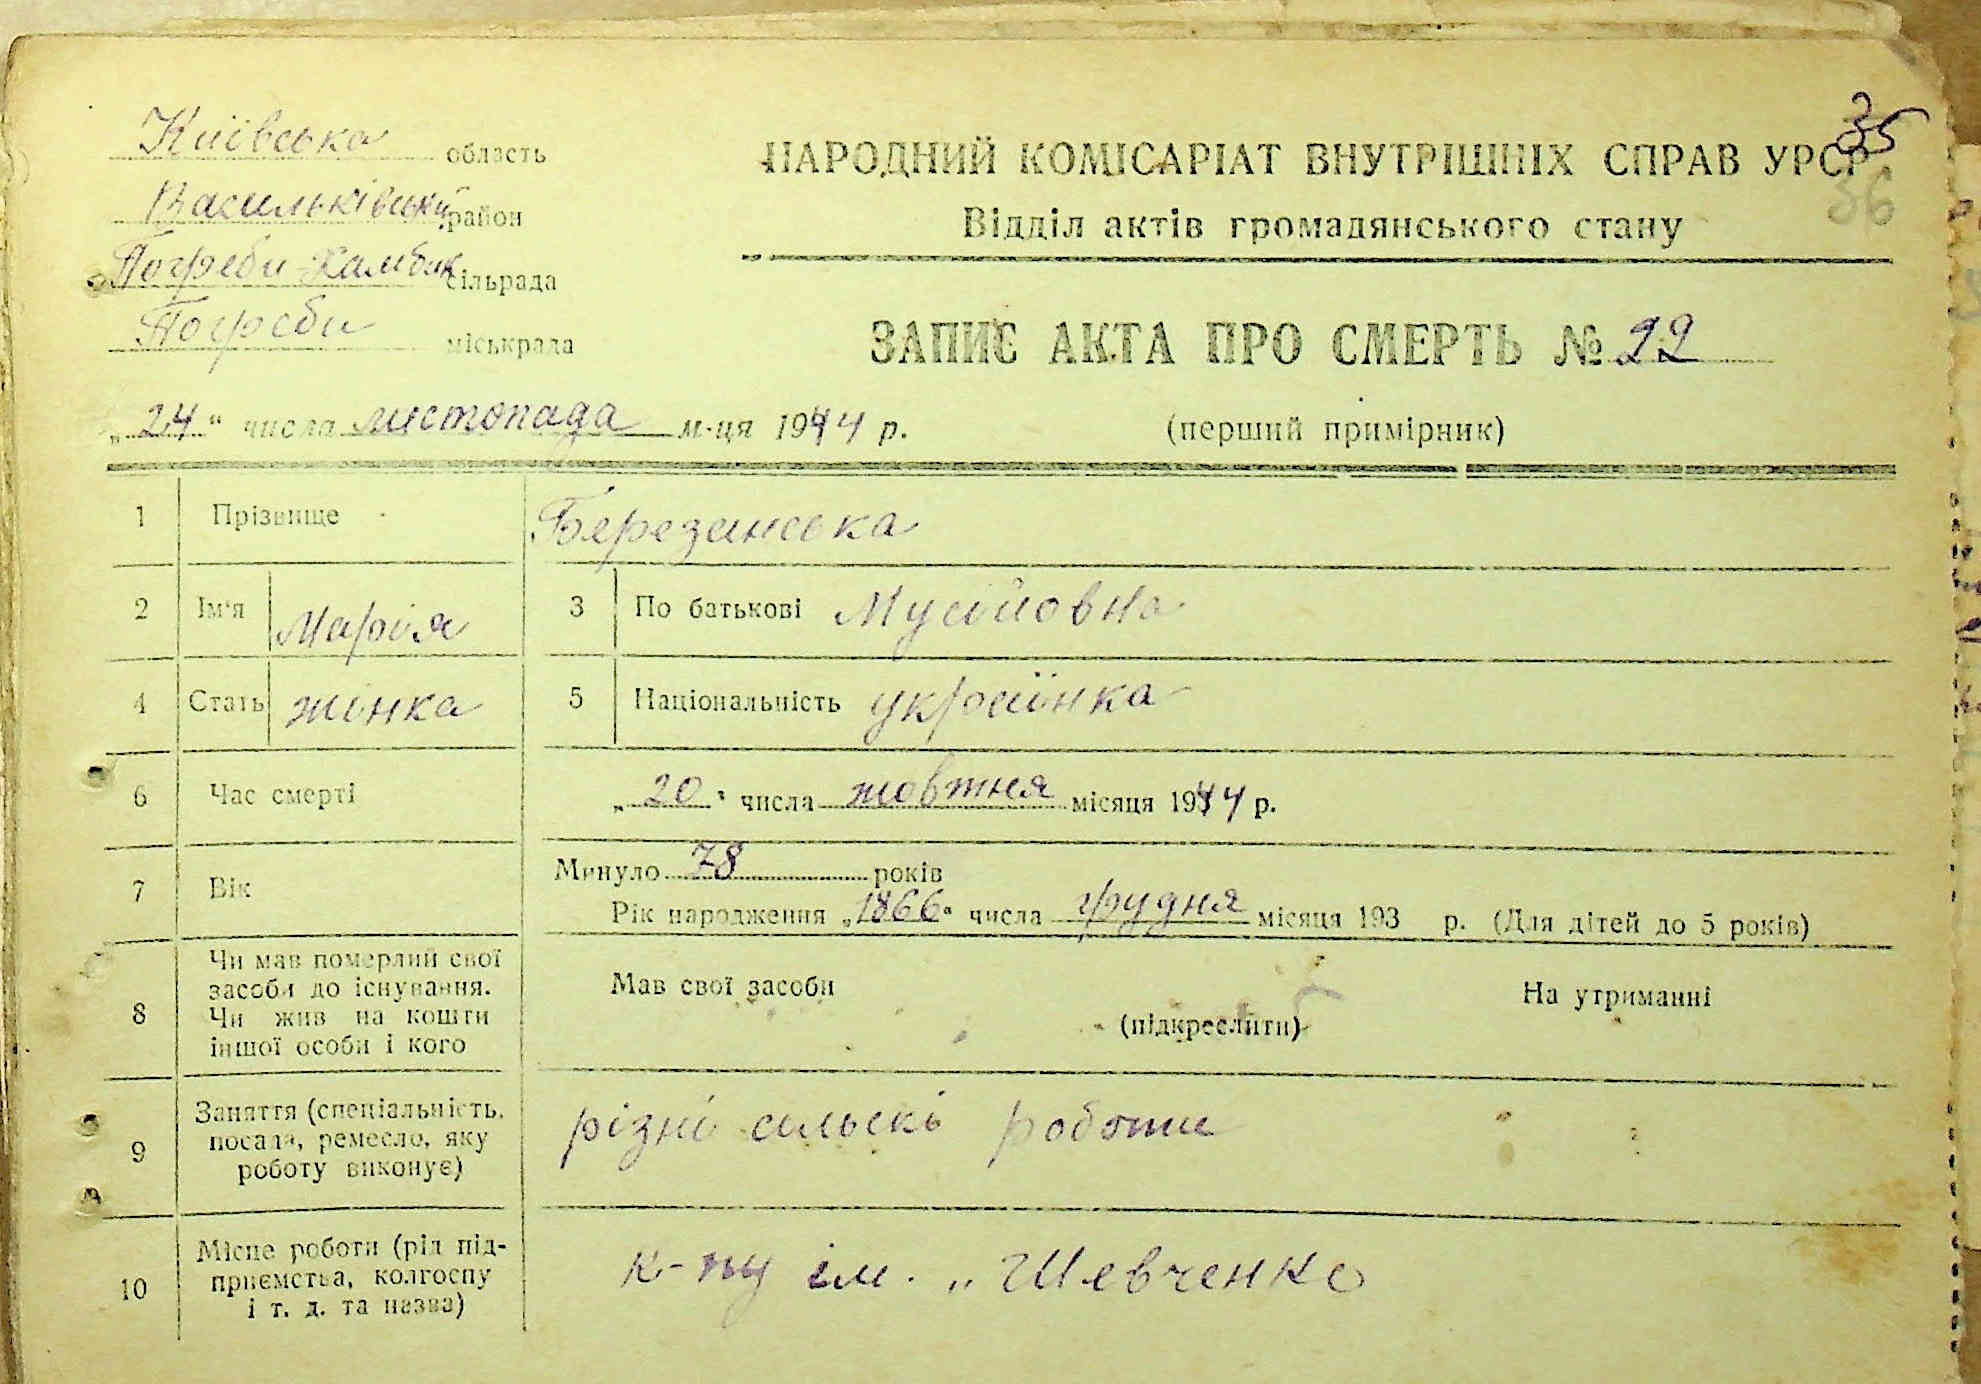 35
36
Київська область
Васильківський район
Погреби сільрада
Погреби міськрада
НАРОДНИЙ КОМІСАРІАТ ВНУТРІШНІХ СПРАВ УРСР
Відділ актів громадянського стану
ЗАПИС АКТА ПРО СМЕРТЬ № 22
„24“ числа листопада м-ця 1944 р.
(перший примірник)
1 Прізвище Березанська
2 Ім'я Марія 3 По батькові Мусійовна
4 Стать жінка 5 Національність українка
6 Час смерті „20“ числа жовтня місяця 1944 р.
7 Вік Минуло 78 років
Рік народження „1866“ числа грудня місяця 193 р. (Для дітей до 5 років)
8 Чи мав померлий свої
засоби до існування.
Чи жив на кошти
іншої особи і кого
Мав свої засоби
(підкреслити)
На утриманні
9 Заняття (спеціальність,
посада, ремесло, яку
роботу виконує)
різні сільскі роботи
10 Місце роботи (рід під-
приємства, колгоспу
і т. д. та назва)
к-пу ім. „Шевченко